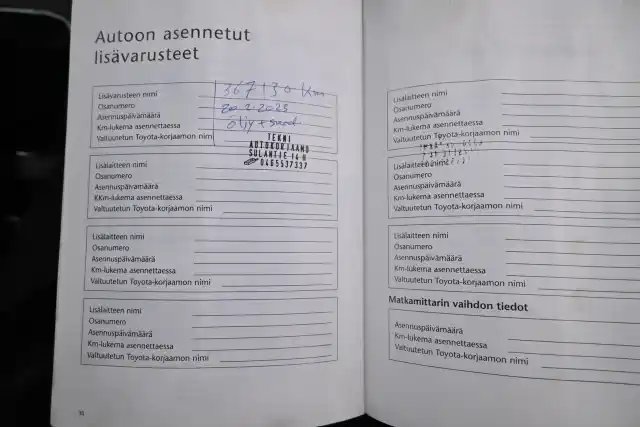 Autoon asennetut
lisävarusteet
Lisävarusteen nimi
367130 km
Osanumero
20.2.2023
Asennuspäivämäärä
öljy +
Km-lukema asennettaessa
Valtuutetun Toyota-korjaamon nimi
TEKNI
AUTOKORJAAMO
SULANTIE 14 H
0465537337
Lisälaitteen nimi
Osanumero
Asennuspäivämäärä
KKm-lukema asennettaessa
Valtuutetun Toyota-korjaamon nimi
Lisälaitteen nimi
Osanumero
Asennuspäivämäärä
Km-lukema asennettaessa
Valtuutetun Toyota-korjaamon nimi
Lisälaitteen nimi
Osanumero
Asennuspäivämäärä
Km-lukema asennettaessa
Valtuutetun Toyota-korjaamon nimi
Lisälaitteen nimi
Osanumero
Asennuspäivämäärä
Km-lukema asennettaessa
Valtuutetun Toyota-korjaamon nimi
Lisälaitteen nimi
Osanumero
Asennuspäivämäärä
Km-lukema asennettaessa
Valtuutetun Toyota-korjaamon nimi
Lisälaitteen nimi
Osanumero
Asennuspäivämäärä
Km-lukema asennettaessa
Valtuutetun Toyota-korjaamon nimi
Matkamittarin vaihdon tiedot
Asennuspäivämäärä
Km-lukema asennettaessa
Valtuutetun Toyota-korjaamon nimi